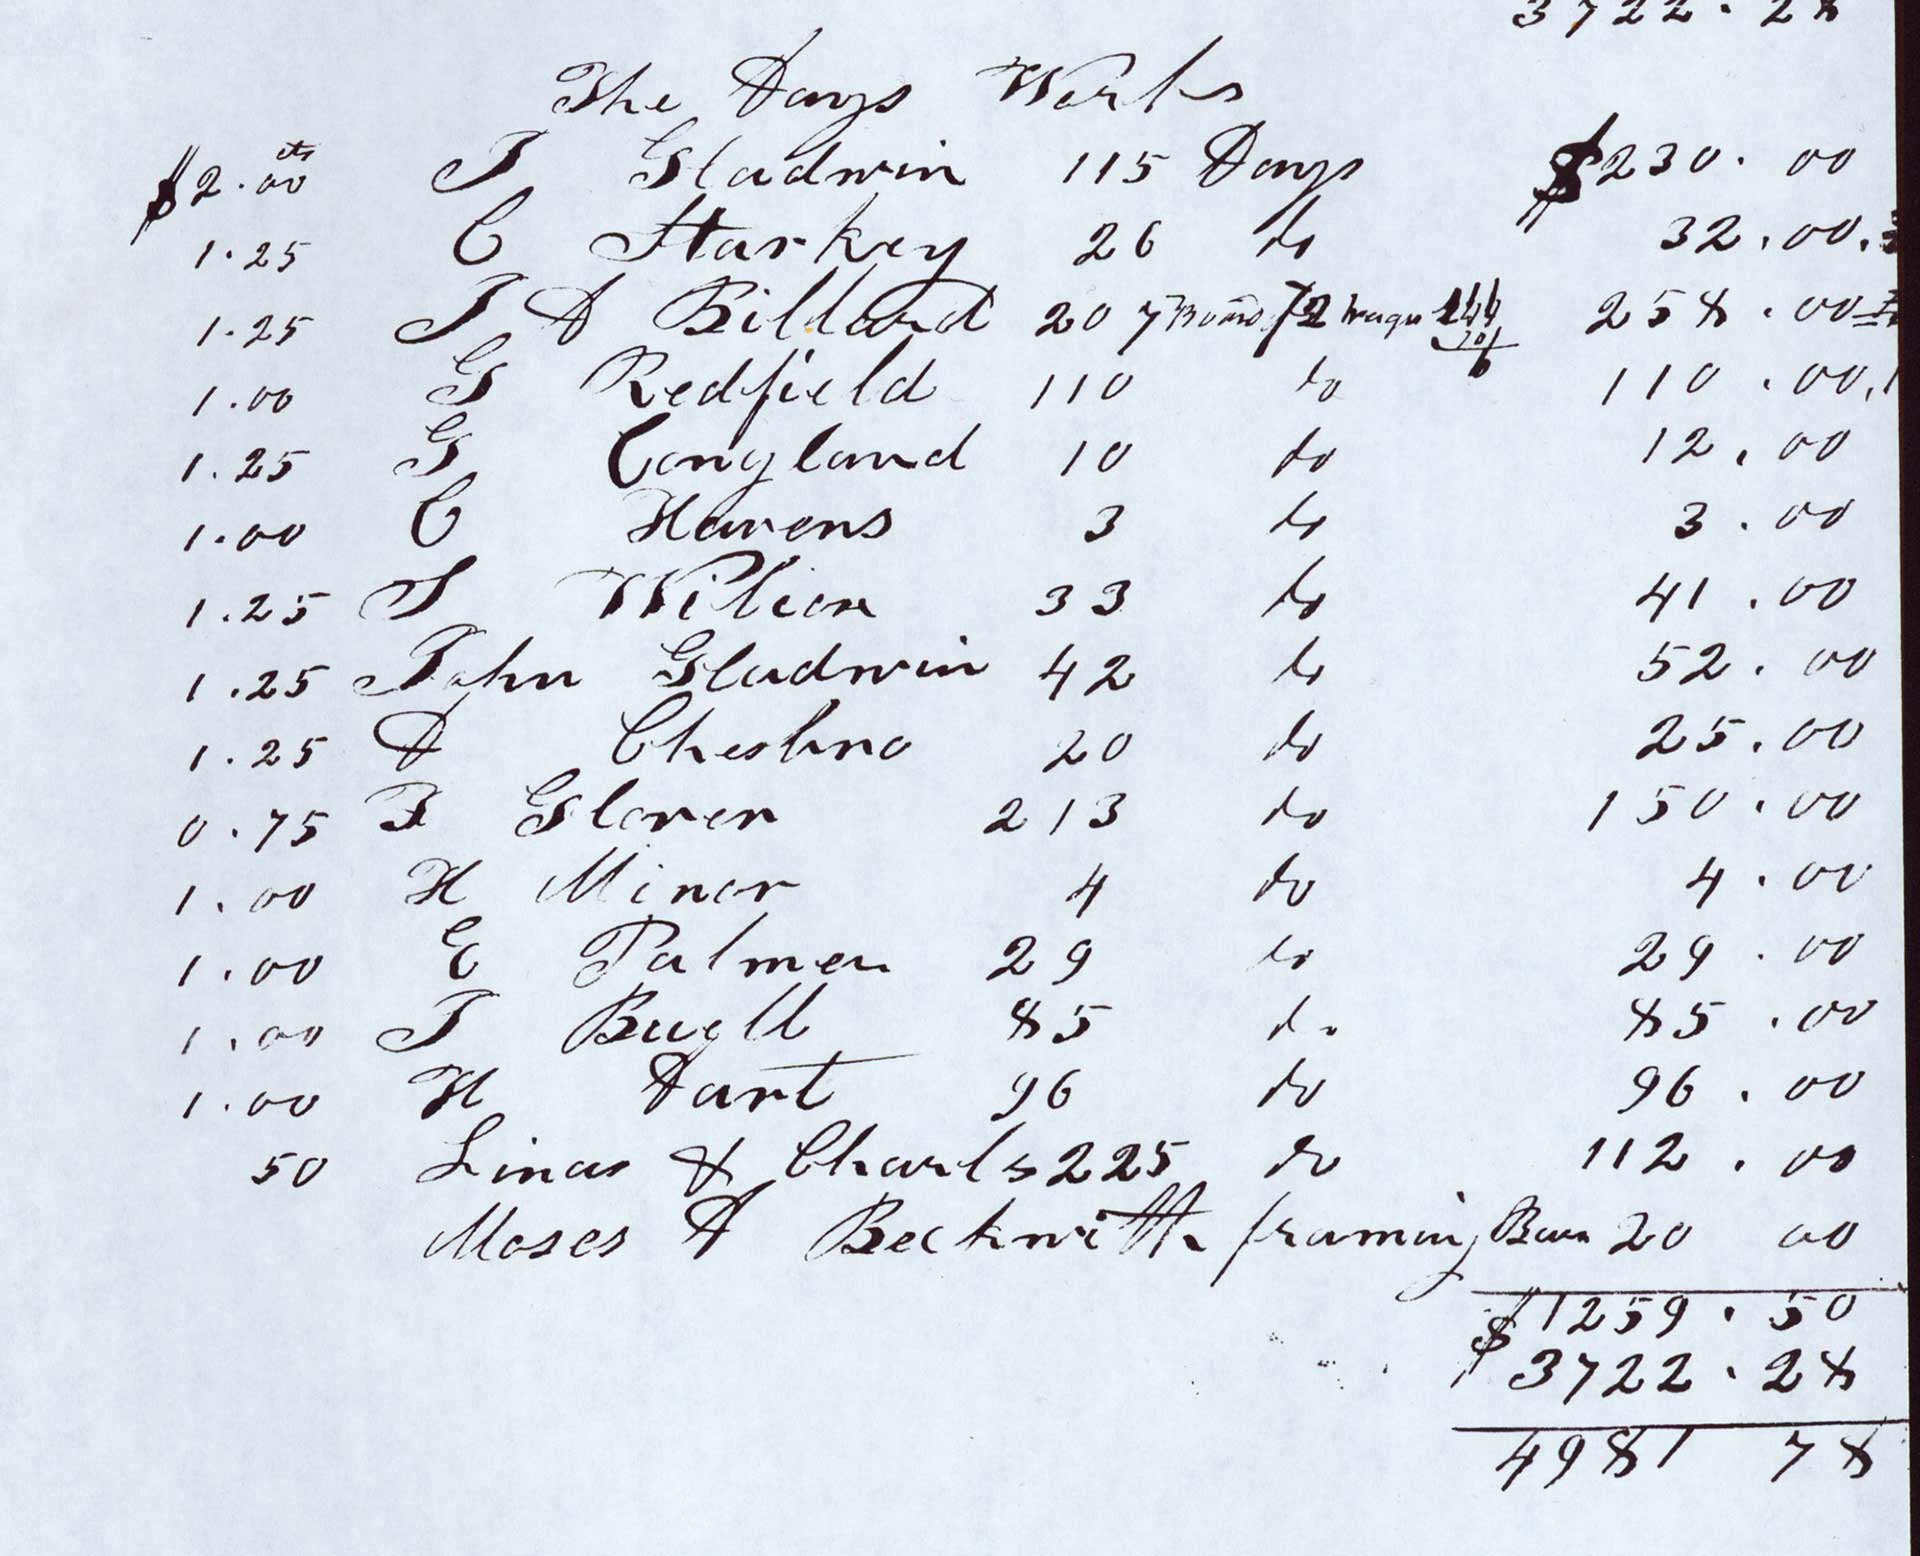 3722.28
The Days Works
$2.00 cts J Gladwin 115 Days $230.00
1.25 C Starkey 26 do 32.00.
1.25 J A Billard 207 72 258.00
1.00 G Redfield 110 do 110.00.
1.25 G Congland 10 do 12.00
1.00 C Havens 3 do 3.00
1.25 S Wilion 33 do 41.00
1.25 John Gladwin 42 do 52.00
1.25 A Chestno 20 do 25.00
0.75 F Glover 213 do 150.00
1.00 H Minor 4 do 4.00
1.00 E Palmer 29 do 29.00
1.00 J Buell 85 do 85.00
1.00 H Dart 96 do 96.00
50 Linas & Charls 225 do 112.00
Moses A Beckwith framing Barn 20 00
$1259.50
$3722.28
4981 78